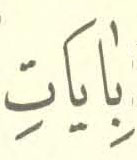 بِاٰيَاتِ